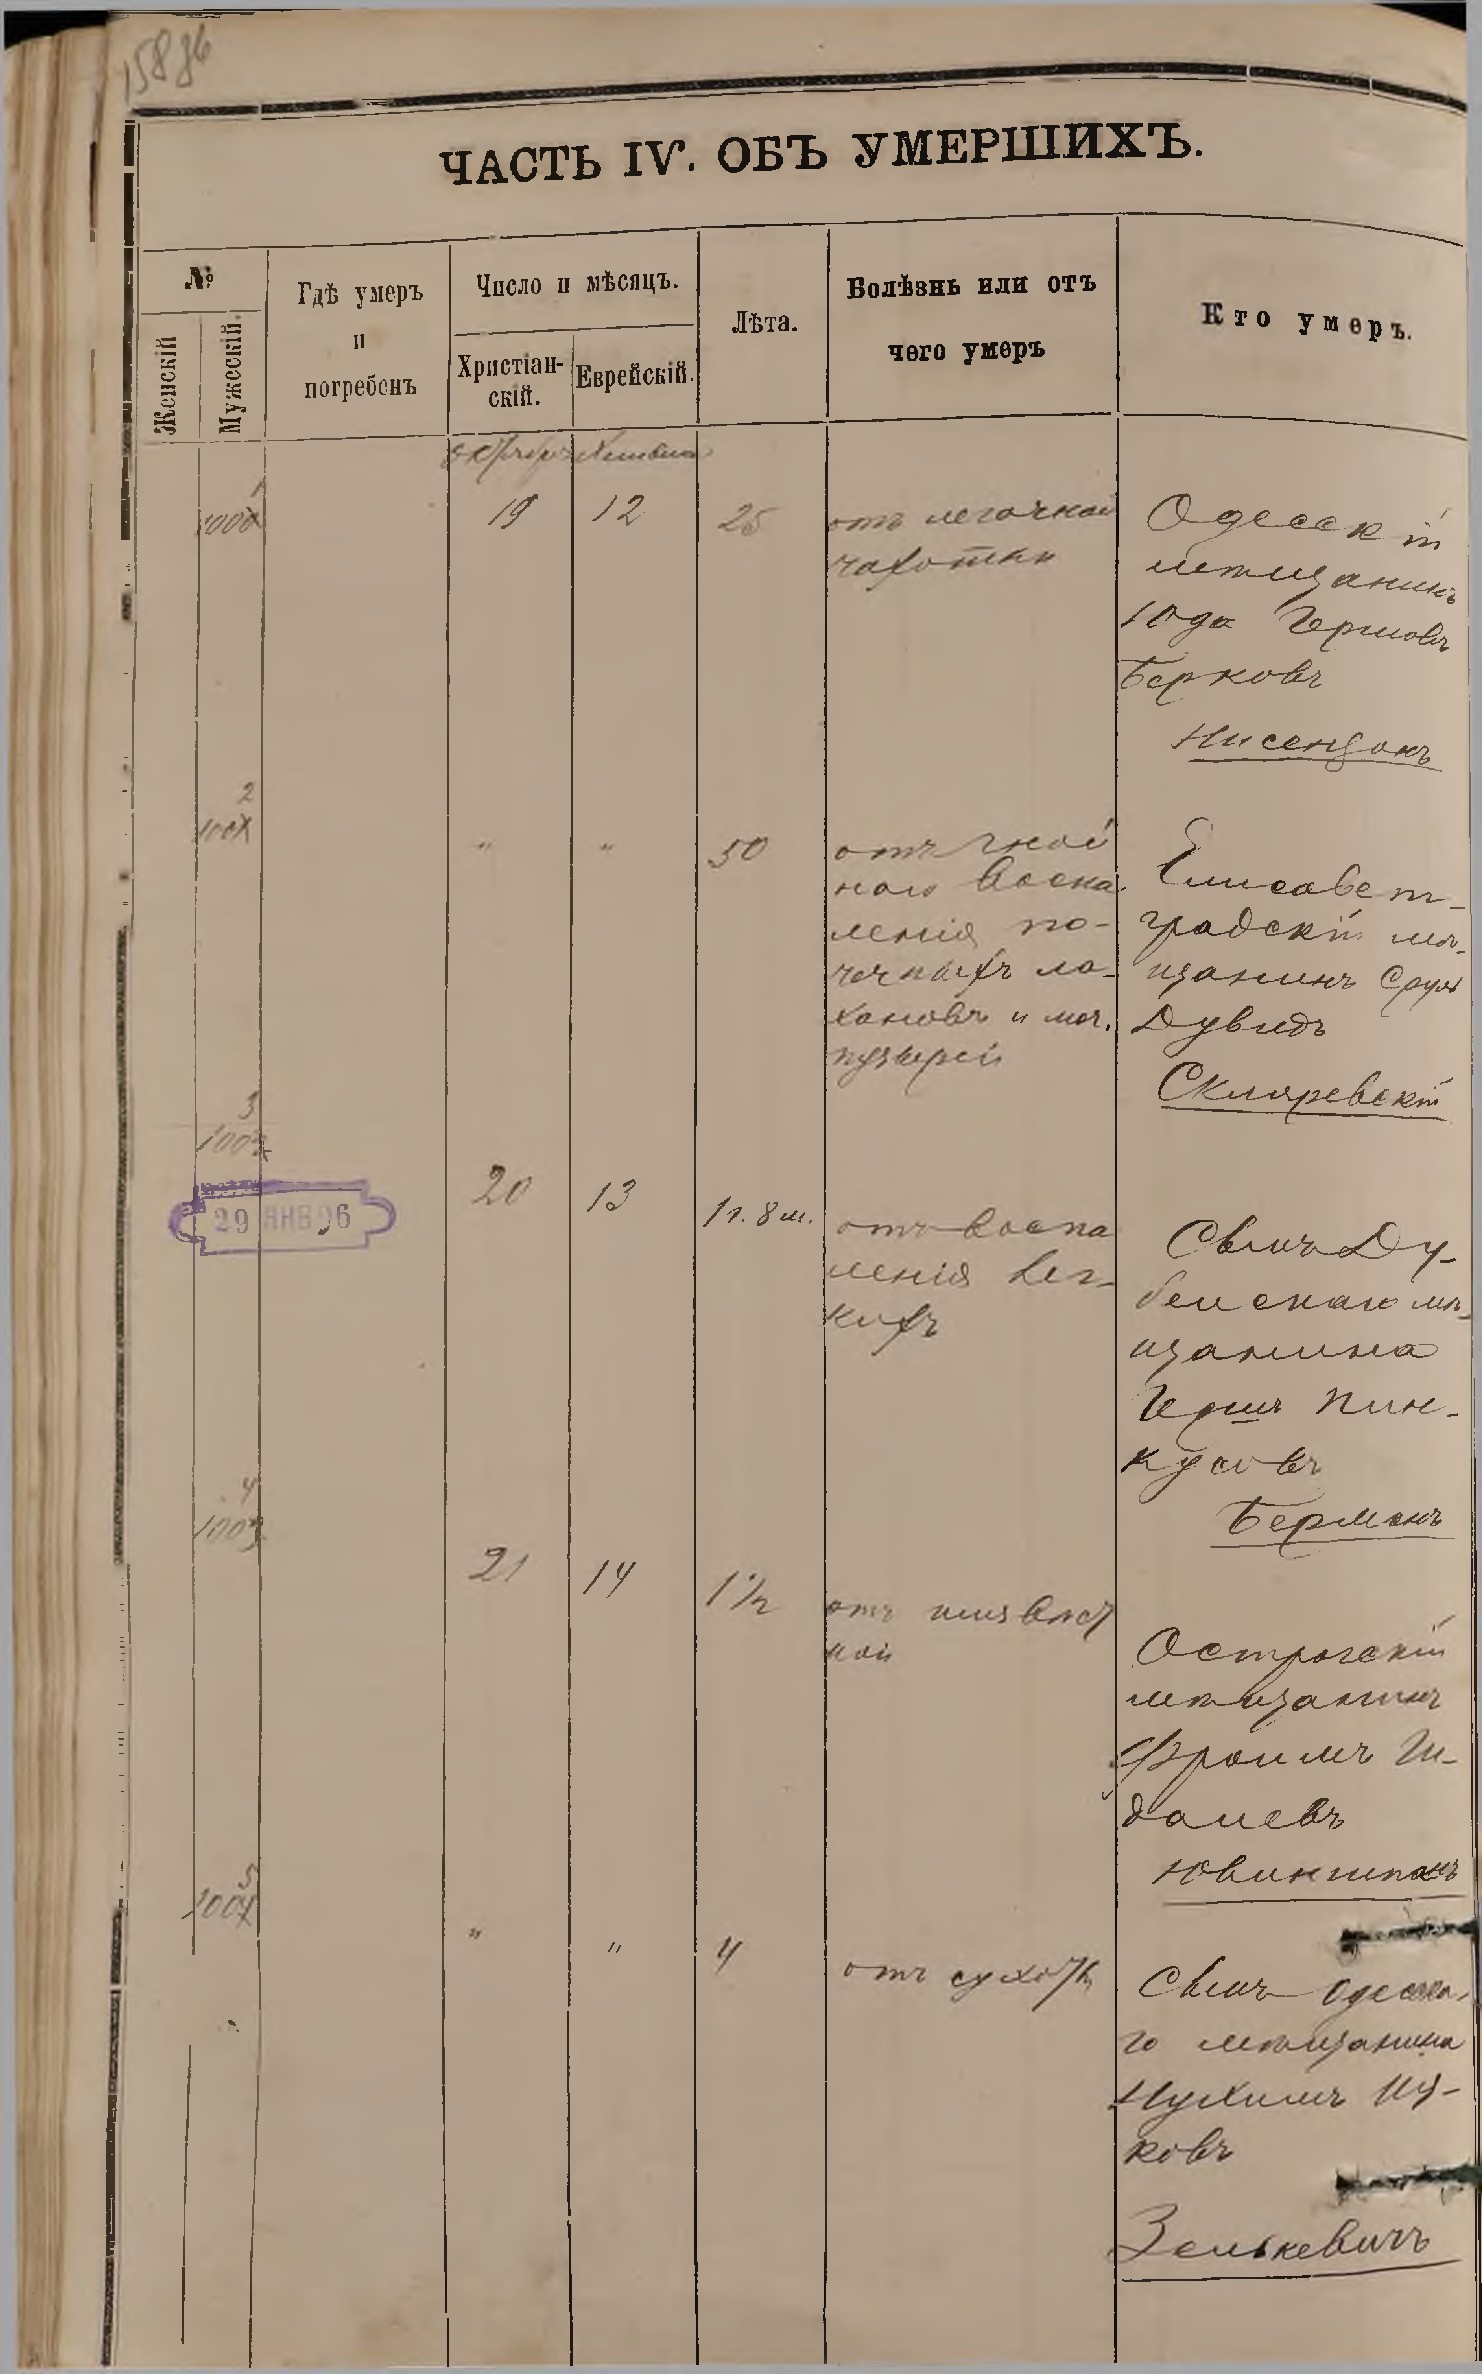 ЧАСТЬ IV. ОБЪ УМЕРШИХЪ.
№
Женскій
Мужескій.
Гдѣ умеръ
и
погребенъ
Число и мѣсяцъ.
Христіан-
скій.
Еврейскій.
Лѣта.
Болѣзнь или отъ
чего умеръ
Кто умеръ.
1
19
12
25
отъ легочной
чахотки
Одесскій
мѣщанинъ
Юда Гершовъ
Берковъ
Нисензонъ
2
"
"
50
отъ гной
наго воспа
ленія по-
чечныхъ ло-
ханокъ и моч.
пузырей
Елисавет-
градскій мѣ-
щанинъ Срул
Дувидъ
Скляревскій
3
29 ЯНВ 96
20
13
1 г. 8 м.
отъ воспа
ленія лег-
кихъ
Сынъ Ду-
бенскаго мѣ-
щанина
Гершъ Пин-
кусовъ
Берманъ
4
21
14
1 1/2
отъ
ной
Острогскій
мѣщанинъ
Фроимъ
далевъ
5
"
"
4
отъ сухотки
Сынъ Одесска-
го мѣщанина
Нухимъ Иц-
ковъ
Зелькевичъ